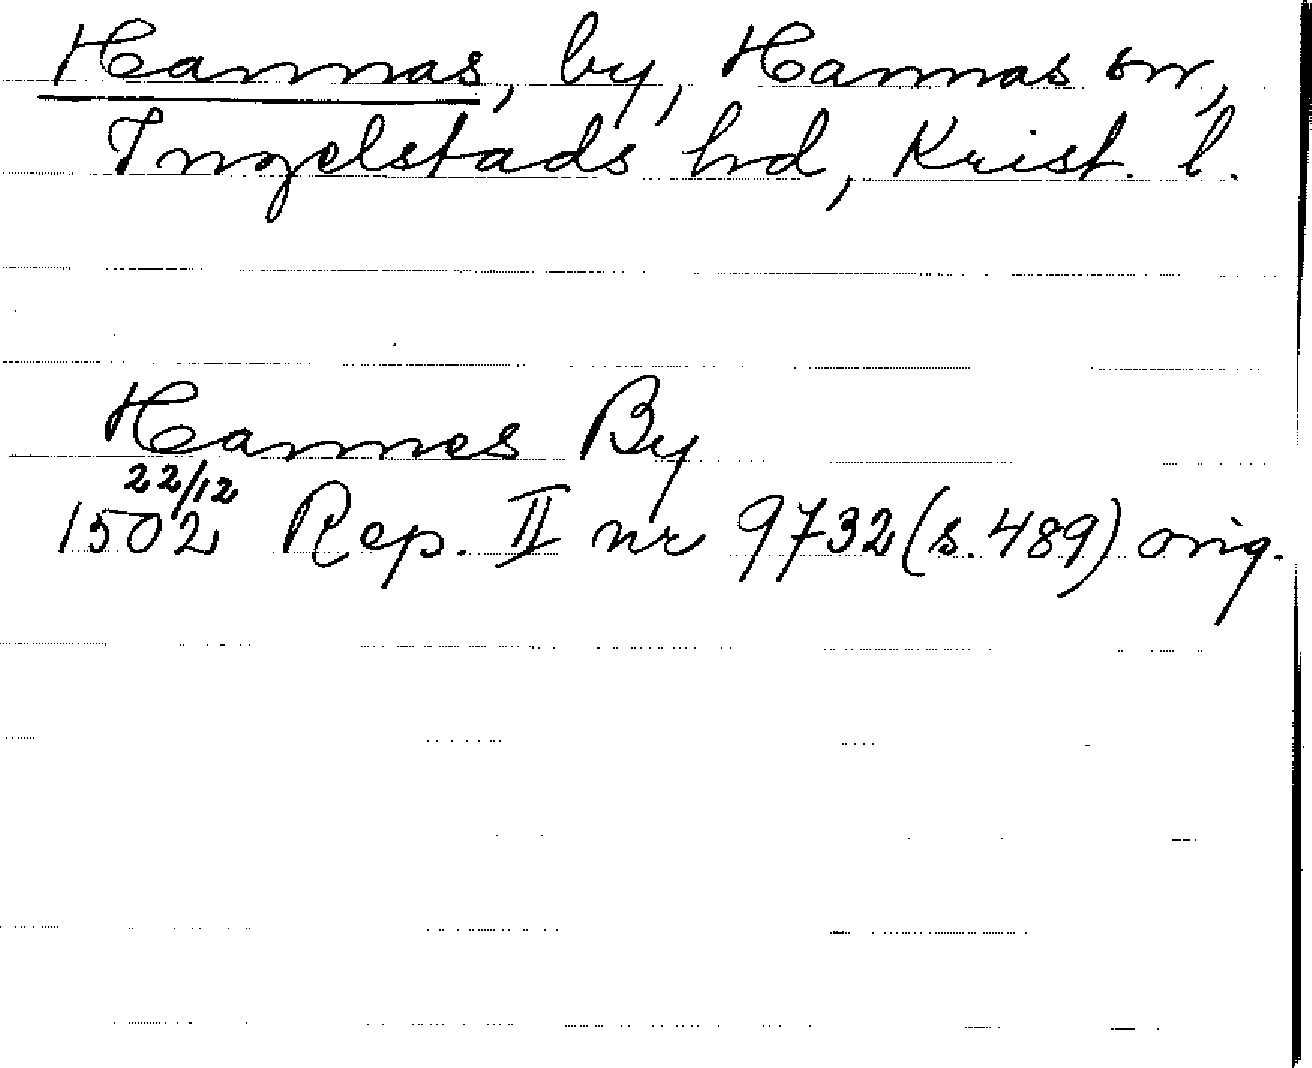 Hannas, by, Hannas sn,
Ingelstads hd, Krist. l.
Hannes By
22/12
1502 Rep. II nr 9732 (s. 489) orig.